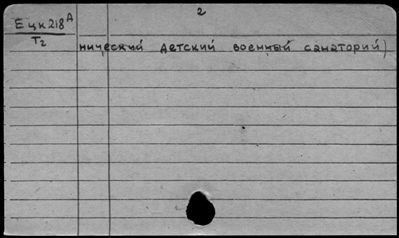 2
Ецк218А
Т2
нический детский военный санаторий)